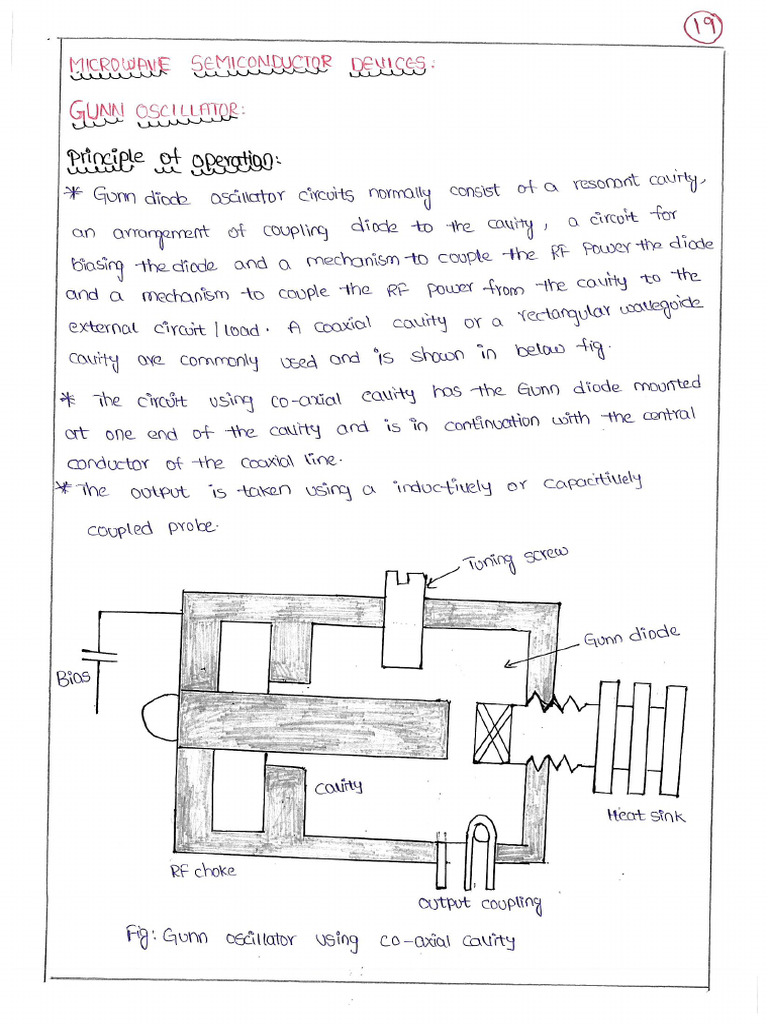 19
MICROWAVE SEMICONDUCTOR DEVICES:
GUNN OSCILLATOR:
Principle of operation:
* Gunn diode oscillator circuits normally consist of a resonant cavity,
an arrangement of coupling diode to the cavity, a circuit for
biasing the diode and a mechanism to couple the RF power the diode
and a mechanism to couple the RF power from the cavity to the
external circuit/load. A coaxial cavity or a rectangular waveguide
cavity are commonly used and is shown in below fig.
* The circuit using co-axial cavity has the Gunn diode mounted
at one end of the cavity and is in continuation with the central
conductor of the coaxial line.
* The output is taken using a inductively or capacitively
coupled probe.
Tuning screw
Gunn diode
Bias
Cavity
Heat sink
RF choke
Output coupling
Fig: Gunn oscillator using co-axial cavity